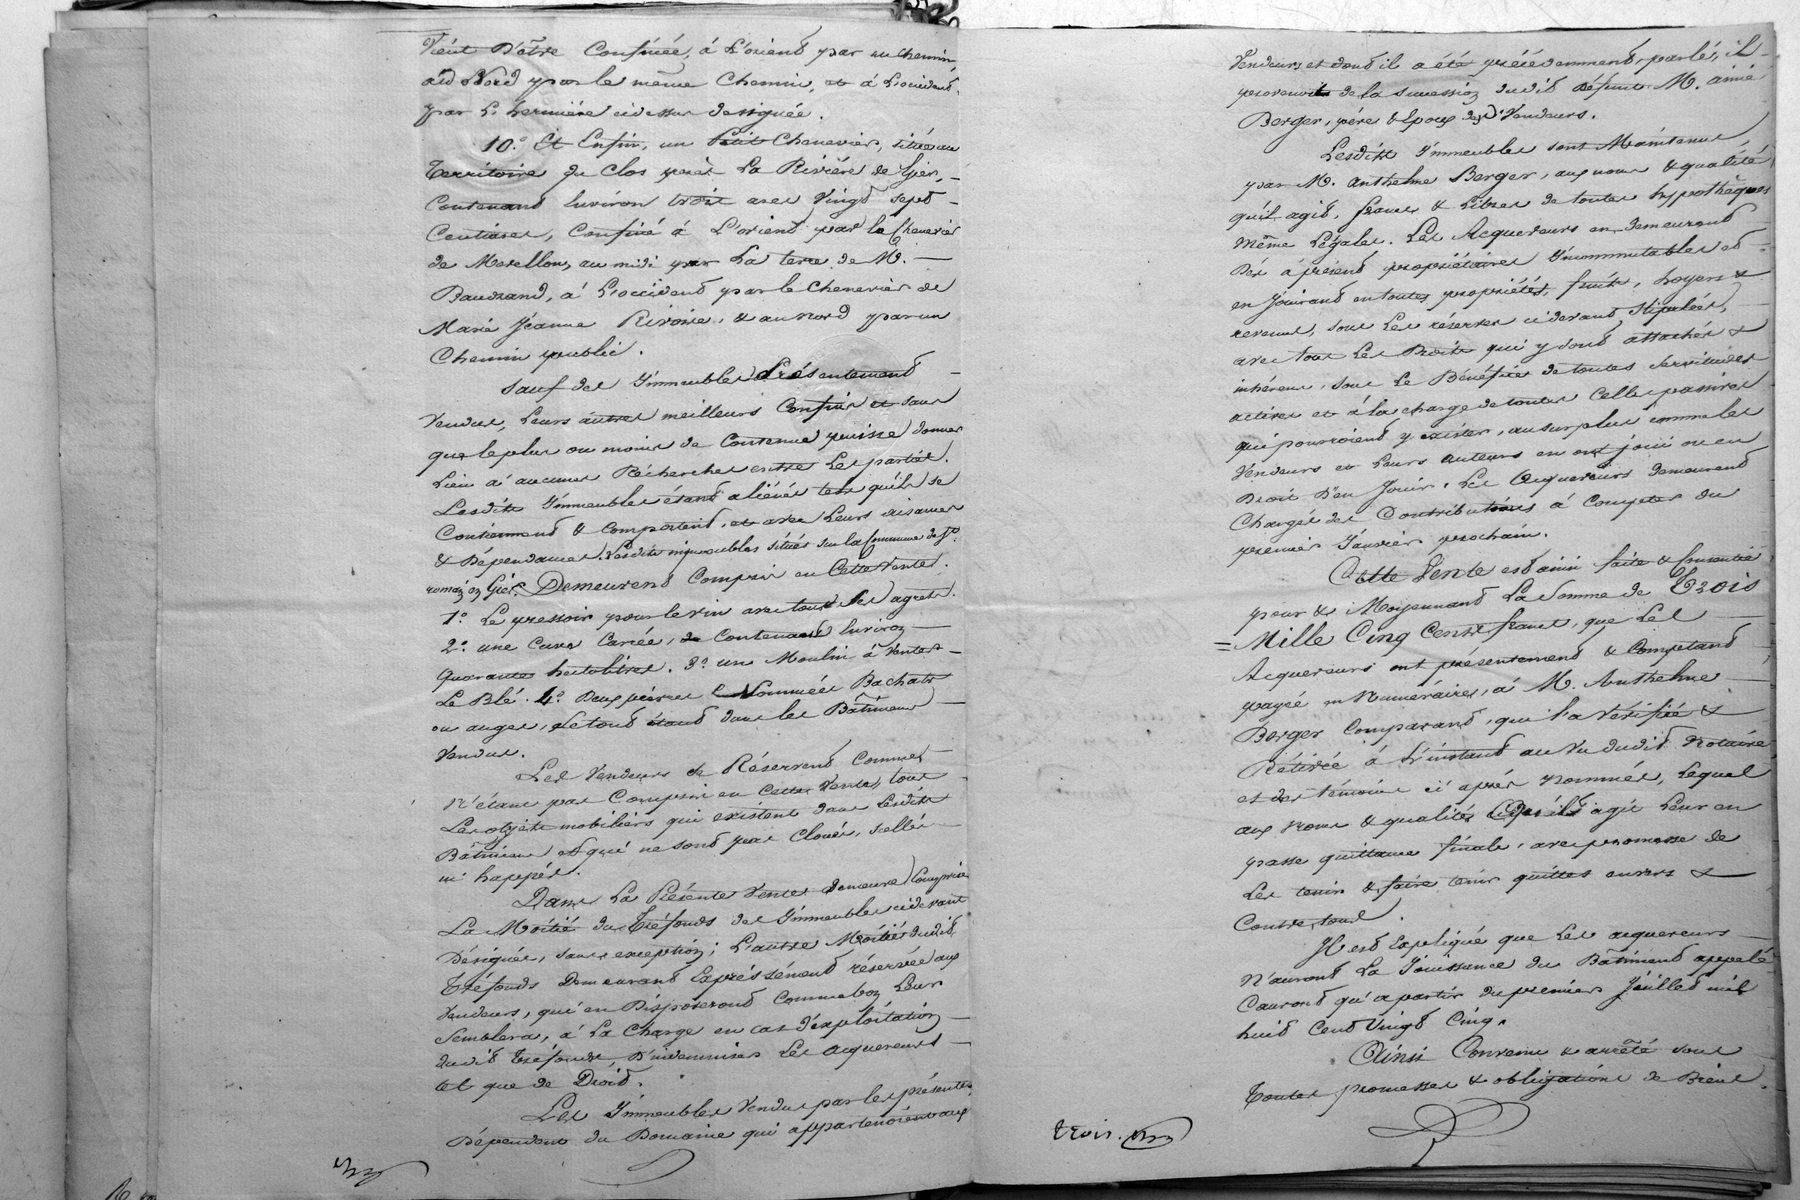 Vient D'être Confinée, à L'orient par un chemin,
au Nord par le même Chemin, et à L'occident
par L. hermière cidessus designée.
10.° Et Enfin, un Petit Chenevier, située au
Territoire du Clos près La Rivière de Gier,
Contenant Environ trois ares Vingt sept
Centiares, Confiné à L'orient par le Chenevier
de Morellon, au midi par La terre de M.
Baudrand, à L'occident par le Chenevier de
Marie Jeanne Rivoire, & au nord par un
Chemin public.
Sauf des Immeubles Présentement
Vendus, Leurs autres meilleurs Confins et sans
que le plus ou moins de Contenue puisse donner
Lieu à aucunes Récherches entre Les parties.
Lesdits Immeubles étant aliénés tels qu'ils se
Contiennent & Comportent, et avec Leurs aisances
& Dépendances. Lesdits immeubles situés sur la Commune de St.
romain en Gier. Demeurent Compris en Cette Vente.
1.° Le pressoir pour le vin avec tous les agrets.
2.° une Cuve Carrée, de Contenant Environ
Quarante hectolitres. 3.° un Moulin à Venter
Le Blé. 4.° Deux pierres Nommées Bachats
ou auges, Le tout étant dans les Bâtiments
Vendus.
Les Vendeurs se Réservent Comme
N'étant pas Compris en Cette Vente, tous
Les objets mobiliers qui existent dans Lesdits
Bâtiments et qui ne sont pas Cloués, scellés
ni happés.
Dans La Présente Vente demeure Comprise
La Moitié du Tréfonds des Immeubles cidevant
Désignés, sans exception; L'autre Moitié dudit
Tréfonds Demeurant Expressément réservée aux
Vendeurs, qui en Disposeront Comme bon Leur
Semblera, à La Charge en cas d'exploitation
dudit Tréfonds, D'indemniser Les acquereurs
tel que de Droit.
Les Immeubles Vendus par les présentes
Dépendent du Domaine qui appartenoient aux
Vendeurs et dont il a été précédemment parlé, il
provenoit de la Succession dudit Défunt M. aimé
Berger, père & Epoux desdts Vendeurs.
Lesdits Immeubles sont Maintenus,
par M. Anthelme Berger, aux noms & qualités
qu'il agit, francs & Libres de toutes hypothèques
même Légales. Les Acquereurs en demeurent
Dès à présent propriétaires Incommutables et
en Jouiront en toutes propriétés, fruits, Loyers &
revenus, sous Les réserves cidevant Stipulées,
avec tous Les Droits qui y sont attachés &
inhérens, sous Le Bénéfice de toutes Servitudes
actives et à la charge de toutes Celles passives
qui pourroient y exister, au surplus comme les
Vendeurs et Leurs auteurs en ont joui ou eu
Droit D'en Jouir. Les Acquereurs Demeurent
Chargés des Contributions à Compter du
premier Janvier prochain.
Cette Vente est ainsi faite & Consentie
pour & Moyennant La Somme de Trois
= Mille Cinq Cents francs, que Les
Acquereurs ont présentement & Comptant
payée en Numéraires, à M. Anthelme
Berger Comparant, qui l'a Vérifiée &
Retirée à L'instant au Vu dudit Notaire
et des témoins ci après nommés, Lequel
aux Noms & qualités qu'il agit Leur en
passe quittance finale, avec promesse de
Les tenir & faire tenir quittes envers &
Contre tous.
Il est Expliqué que Les acquereurs
N'auront La Jouissance du Bâtiment appelé
Caurand qu'à partir du premier Juillet mil
huit Cent Vingt Cinq.
Ainsi Convenu & arrêté sous
Toutes promesses & obligations de Biens.
trois.